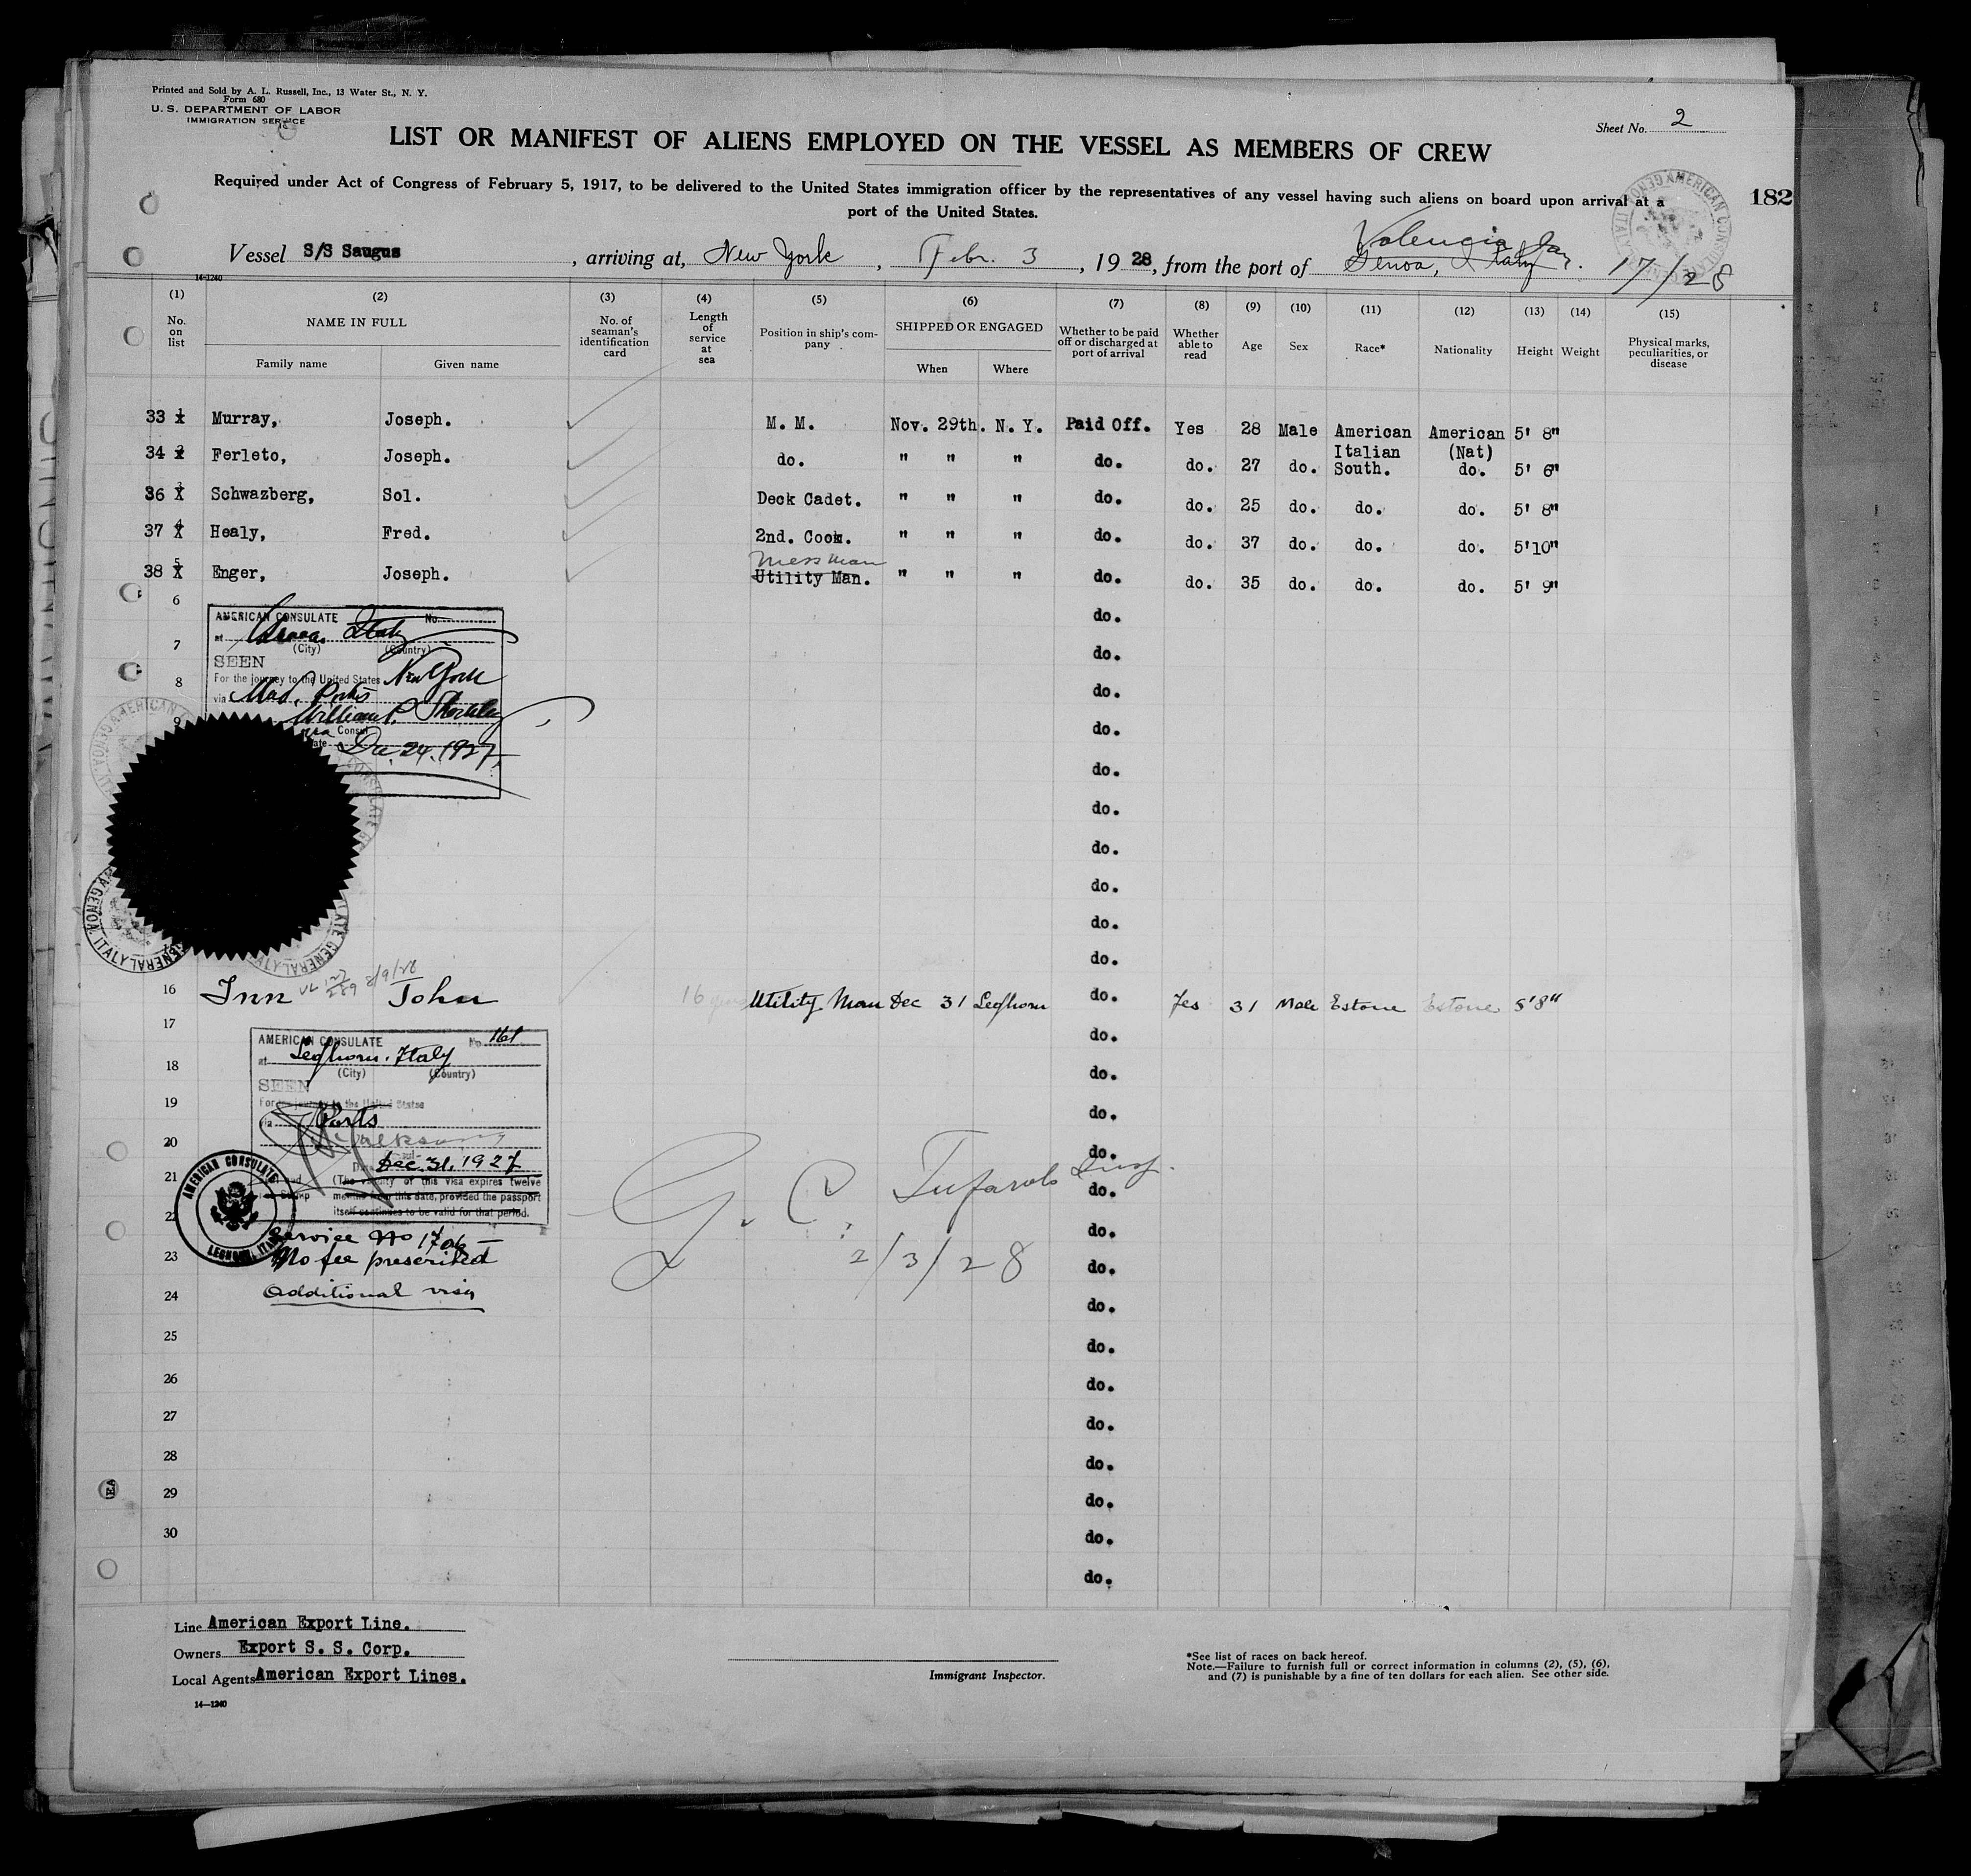 Printed and Sold by A. L. Russell, Inc., 13 Water St., N. Y.
Form 680
U. S. DEPARTMENT OF LABOR
IMMIGRATION SERVICE
Sheet No. 2
LIST OR MANIFEST OF ALIENS EMPLOYED ON THE VESSEL AS MEMBERS OF CREW
Required under Act of Congress of February 5, 1917, to be delivered to the United States immigration officer by the representatives of any vessel having such aliens on board upon arrival at a
port of the United States.
182
Valencia Jan. 17/28
Vessel S/S Saugus, arriving at, New York, Febr. 3, 1928, from the port of Genoa, Italy
14-1240
(1) (2) (3) (4) (5) (6) (7) (8) (9) (10) (11) (12) (13) (14) (15)
No. on list NAME IN FULL Family name Given name No. of seaman's identification card Length of service at sea Position in ship's company SHIPPED OR ENGAGED When Where Whether to be paid off or discharged at port of arrival Whether able to read Age Sex Race* Nationality Height Weight Physical marks, peculiarities, or disease
33 1 Murray, Joseph. M. M. Nov. 29th. N. Y. Paid Off. Yes 28 Male American American 5' 8"
34 2 Ferleto, Joseph. do. " " " do. do. 27 do. Italian South. (Nat) do. 5' 6"
36 3 Schwazberg, Sol. Deck Cadet. " " " do. do. 25 do. do. do. 5' 8"
37 4 Healy, Fred. 2nd. Cook. " " " do. do. 37 do. do. do. 5'10"
Mess Man
38 5 Enger, Joseph. Utility Man. " " " do. do. 35 do. do. do. 5' 9"
6 do.
AMERICAN CONSULATE No.
at Genoa Italy
(City) (Country)
7 do.
SEEN
For the journey to the United States New York
8 do.
via Med. Ports
William P. Shockley
9 do.
Consul
Dec. 24. 1927.
do.
do.
do.
do.
do.
do.
GENOA, ITALY
16 Inn John 16 Utility Man Dec 31 Leghorn do. Yes 31 Male Estone Estone 5'8"
8/9/28
17 do.
AMERICAN CONSULATE No 161
at Leghorn. Italy
(City) (Country)
18 do.
SEEN
For the journey to the United States
19 do.
via Ports
20 do.
Dec. 31. 1927
21 do.
(The validity of this visa expires twelve
months from this date, provided the passport
itself continues to be valid for that period.
AMERICAN CONSULATE
LEGHORN, ITALY
22 do.
Service No 1706
No fee prescribed
23 do.
Additional visa
24 do.
G. C. Tufarolo Insp.
2/3/28
25 do.
26 do.
27 do.
28 do.
29 do.
30 do.
do.
Line American Export Line.
Owners Export S. S. Corp.
Local Agents American Export Lines.
14—1240
Immigrant Inspector.
*See list of races on back hereof.
Note.—Failure to furnish full or correct information in columns (2), (5), (6),
and (7) is punishable by a fine of ten dollars for each alien. See other side.